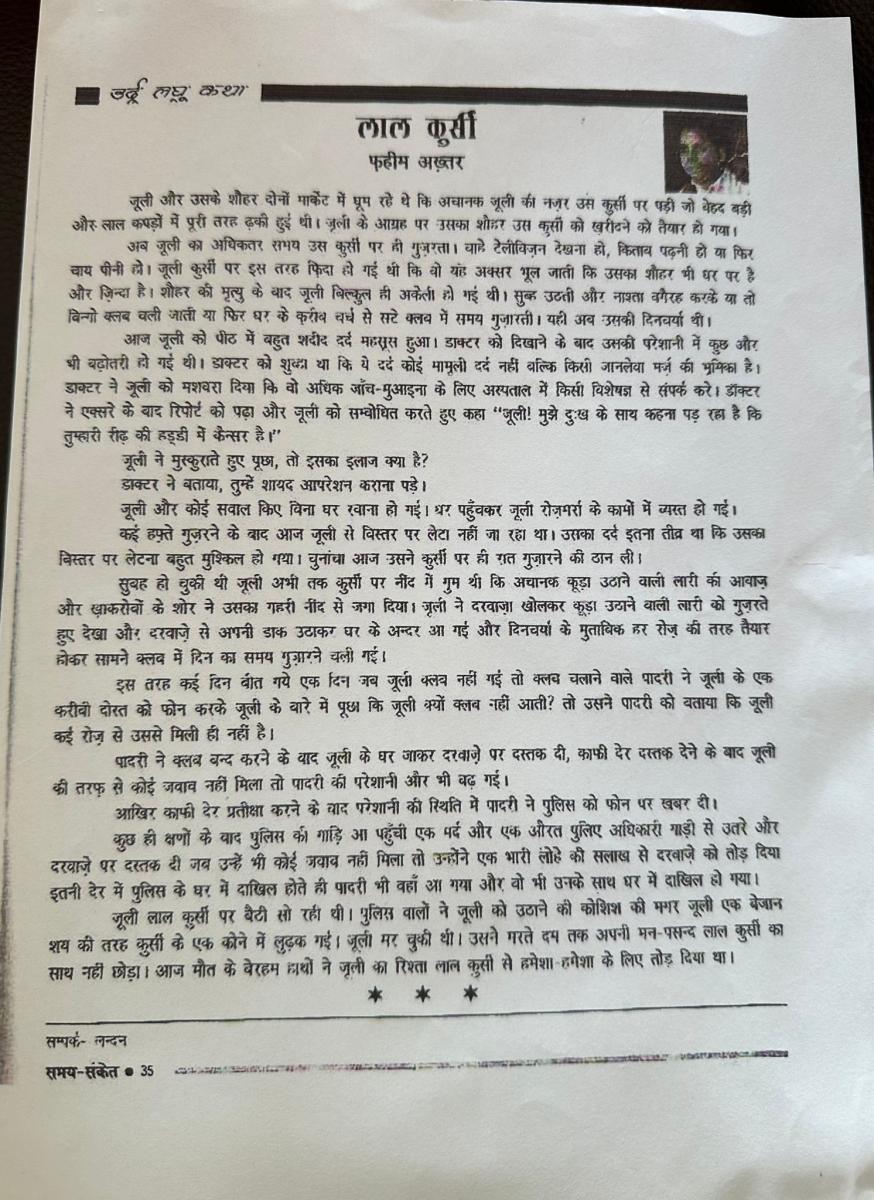 उर्दू लघू कथा
लाल कुर्सी
फ़हीम अख़्तर
जूली और उसके शौहर दोनों मार्केट में घूम रहे थे कि अचानक जूली की नज़र उस कुर्सी पर पड़ी जो बेहद बड़ी
और लाल कपड़ों में पूरी तरह ढकी हुई थी। जूली के आग्रह पर उसका शौहर उस कुर्सी को खरीदने को तैयार हो गया।
अब जूली का अधिकतर समय उस कुर्सी पर ही गुज़रता। चाहे टेलीविज़न देखना हो, किताब पढ़नी हो या फिर
चाय पीनी हो। जूली कुर्सी पर इस तरह फ़िदा हो गई थी कि वो यह अक्सर भूल जाती कि उसका शौहर भी घर पर है
और ज़िन्दा है। शौहर की मृत्यु के बाद जूली बिल्कुल ही अकेली हो गई थी। सुब्ह उठती और नाश्ता वग़ैरह करके या तो
बिन्गो क्लब चली जाती या फिर घर के क़रीब चर्च से सटे क्लब में समय गुज़ारती। यही अब उसकी दिनचर्या थी।
आज जूली को पीठ में बहुत शदीद दर्द महसूस हुआ। डाक्टर को दिखाने के बाद उसकी परेशानी में कुछ और
भी बढ़ोतरी हो गई थी। डाक्टर को शुब्हा था कि ये दर्द कोई मामूली दर्द नहीं बल्कि किसी जानलेवा मर्ज़ की भूमिका है।
डाक्टर ने जूली को मशवरा दिया कि वो अधिक जाँच-मुआइना के लिए अस्पताल में किसी विशेषज्ञ से संपर्क करे। डॉक्टर
ने एक्सरे के बाद रिपोर्ट को पढ़ा और जूली को सम्बोधित करते हुए कहा “जूली! मुझे दुःख के साथ कहना पड़ रहा है कि
तुम्हारी रीढ़ की हड्डी में कैन्सर है।”
जूली ने मुस्कुराते हुए पूछा, तो इसका इलाज क्या है?
डाक्टर ने बताया, तुम्हें शायद आपरेशन कराना पड़े।
जूली और कोई सवाल किए बिना घर रवाना हो गई। घर पहुँचकर जूली रोज़मर्रा के कामों में व्यस्त हो गई।
कई हफ़्ते गुज़रने के बाद आज जूली से बिस्तर पर लेटा नहीं जा रहा था। उसका दर्द इतना तीव्र था कि उसका
बिस्तर पर लेटना बहुत मुश्किल हो गया। चुनांचा आज उसने कुर्सी पर ही रात गुज़ारने की ठान ली।
सुबह हो चुकी थी जूली अभी तक कुर्सी पर नींद में गुम थी कि अचानक कूड़ा उठाने वाली लारी की आवाज़
और ख़ाकरोबों के शोर ने उसका गहरी नींद से जगा दिया। जूली ने दरवाज़ा खोलकर कूड़ा उठाने वाली लारी को गुज़रते
हुए देखा और दरवाज़े से अपनी डाक उठाकर घर के अन्दर आ गई और दिनचर्या के मुताबिक हर रोज़ की तरह तैयार
होकर सामने क्लब में दिन का समय गुज़ारने चली गई।
इस तरह कई दिन बीत गये एक दिन जब जूली क्लब नहीं गई तो क्लब चलाने वाले पादरी ने जूली के एक
करीबी दोस्त को फोन करके जूली के बारे में पूछा कि जूली क्यों क्लब नहीं आती? तो उसने पादरी को बताया कि जूली
कई रोज़ से उससे मिली ही नहीं है।
पादरी ने क्लब बन्द करने के बाद जूली के घर जाकर दरवाज़े पर दस्तक दी, काफी देर दस्तक देने के बाद जूली
की तरफ़ से कोई जवाब नहीं मिला तो पादरी की परेशानी और भी बढ़ गई।
आखिर काफी देर प्रतीक्षा करने के बाद परेशानी की स्थिति में पादरी ने पुलिस को फोन पर खबर दी।
कुछ ही क्षणों के बाद पुलिस की गाड़ि आ पहुँची एक मर्द और एक औरत पुलिए अधिकारी गाड़ी से उतरे और
दरवाज़े पर दस्तक दी जब उन्हें भी कोई जवाब नहीं मिला तो उन्होंने एक भारी लोहे की सलाख से दरवाज़े को तोड़ दिया
इतनी देर में पुलिस के घर में दाखिल होते ही पादरी भी वहाँ आ गया और वो भी उनके साथ घर में दाखिल हो गया।
जूली लाल कुर्सी पर बैठी सो रही थी। पुलिस वालों ने जूली को उठाने की कोशिश की मगर जूली एक बेजान
शय की तरह कुर्सी के एक कोने में लुढ़क गई। जूली मर चुकी थी। उसने मरते दम तक अपनी मन-पसन्द लाल कुर्सी का
साथ नहीं छोड़ा। आज मौत के बेरहम हाथों ने जूली का रिश्ता लाल कुर्सी से हमेशा-हमेशा के लिए तोड़ दिया था।
सम्पर्क- लन्दन
समय-संकेत ● 35